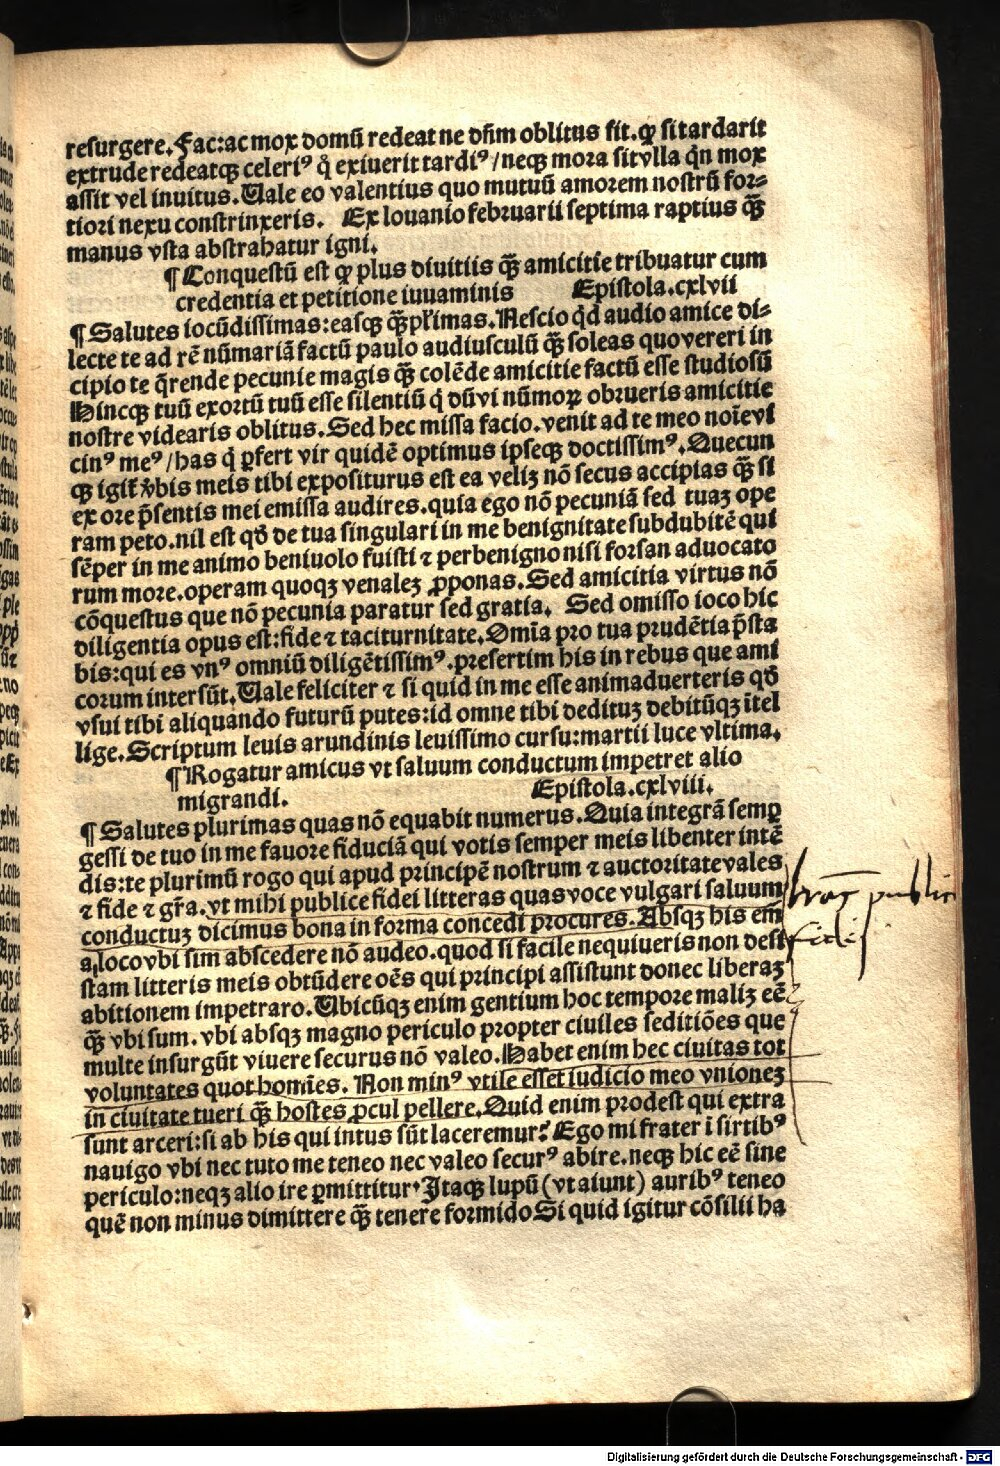 resurgere. Fac: ac mox domū redeat ne dñm oblitus sit. ꝙ si tardarit
extrude redeatqꝫ celeriꝰ q̇ exiuerit tardiꝰ / neqꝫ mora sit vlla qͥn mox
assit vel inuitus. Uale eo valentius quo mutuū amorem nostrū for⸗
tiori nexu constrinxeris. Ex louanio februarii septima raptius q̄ꝫ
manus vsta abstrahatur igni.
¶ Conquestū est ꝙ plus diuitiis q̄ꝫ amicitie tribuatur cum
credentia et petitione iuuaminis Epistola. cxlvii
¶ Salutes iocūdissimas: easqꝫ q̄ꝫpl'imas. Nescio qͥd audio amice di⸗
lecte te ad rē nūmariā factū paulo audiusculū q̄ꝫ soleas quo vereri in
cipio te q̄rende pecunie magis q̄ꝫ colēde amicitie factū esse studiosū
Hincqꝫ tuū exortū tuū esse silentiū q̇ dū vi nūmoꝝ obrueris amicitie
nostre videaris oblitus. Sed hec missa facio. venit ad te meo noīe vi
cinꝰ meꝰ / has q̇ ꝑfert vir quidē optimus ipseqꝫ doctissimꝰ. Quecun
qꝫ igit̄ v̄bis meis tibi expositurus est ea veliꝫ nō secus accipias q̄ꝫ si
ex ore p̄sentis mei emissa audires. quia ego nō pecuniā sed tuaꝫ ope
ram peto. nil est qd̄ de tua singulari in me benignitate subdubitē qui
sēper in me animo beniuolo fuisti ⁊ perbenigno nisi forsan aduocato
rum more. operam quoqꝫ venaleꝫ ꝓponas. Sed amicitia virtus nō
cōquestus que nō pecunia paratur sed gratia. Sed omisso ioco hic
diligentia opus est: fide ⁊ taciturnitate. Om̄ia pro tua prudētia p̄sta
bis: qui es vnꝰ omniū diligētissimꝰ. presertim his in rebus que ami
corum intersūt. Uale feliciter ⁊ si quid in me esse animaduerteris qd̄
vsui tibi aliquando futurū putes: id omne tibi dedituꝫ debitūqꝫ ītel
lige. Scriptum leuis arundinis leuissimo cursu: martii luce vltima.
¶ Rogatur amicus vt saluum conductum impetret alio
migrandi. Epistola. cxlviii.
¶ Salutes plurimas quas nō equabit numerus. Quia integrā semꝑ
gessi de tuo in me fauore fiduciā qui votis semper meis libenter intē
dis: te plurimū rogo qui apud principē nostrum ⁊ auctoritate vales
⁊ fide ⁊ gr̄a. vt mihi publice fidei litteras quas voce vulgari saluum
conductuꝫ dicimus bona in forma concedi procures. Absqꝫ his em̄
a loco vbi sim abscedere nō audeo. quod si facile nequiueris non desi
stam litteris meis obtūdere oēs qui principi assistunt donec liberaꝫ
abitionem impetraro. Ubicūqꝫ enim gentium hoc tempore maliꝫ eē
q̄ꝫ vbi sum. vbi absqꝫ magno periculo propter ciuiles seditiōes que
multe insurgūt viuere securus nō valeo. Habet enim hec ciuitas tot
voluntates quot hom̄ies. Non minꝰ vtile esset iudicio meo vnioneꝫ
in ciuitate tueri q̄ꝫ hostes ꝓcul pellere. Quid enim prodest qui extra
sunt arceri: si ab his qui intus sūt laceremur? Ego mi frater ī sirtibꝰ
nauigo vbi nec tuto me teneo nec valeo securꝰ abire. neqꝫ hic eē sine
periculo: neqꝫ alio ire ꝑmittitur. Itaqꝫ lupū (vt aiunt) auribꝰ teneo
quē non minus dimittere q̄ꝫ tenere formido Si quid igitur cōsilii ha
publice
fidei
Digitalisierung gefördert durch die Deutsche Forschungsgemeinschaft - DFG